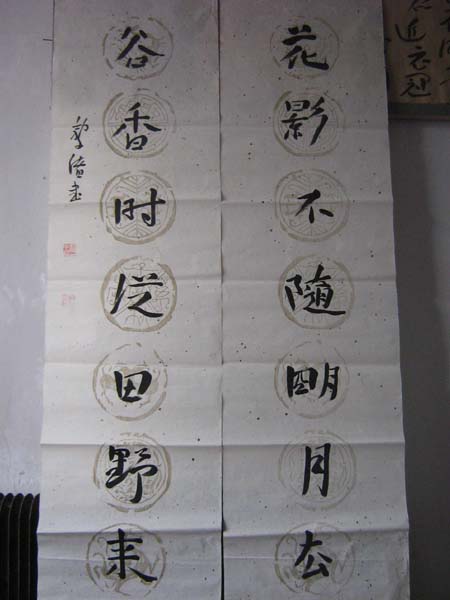 花影不随明月去
谷香时从田野来